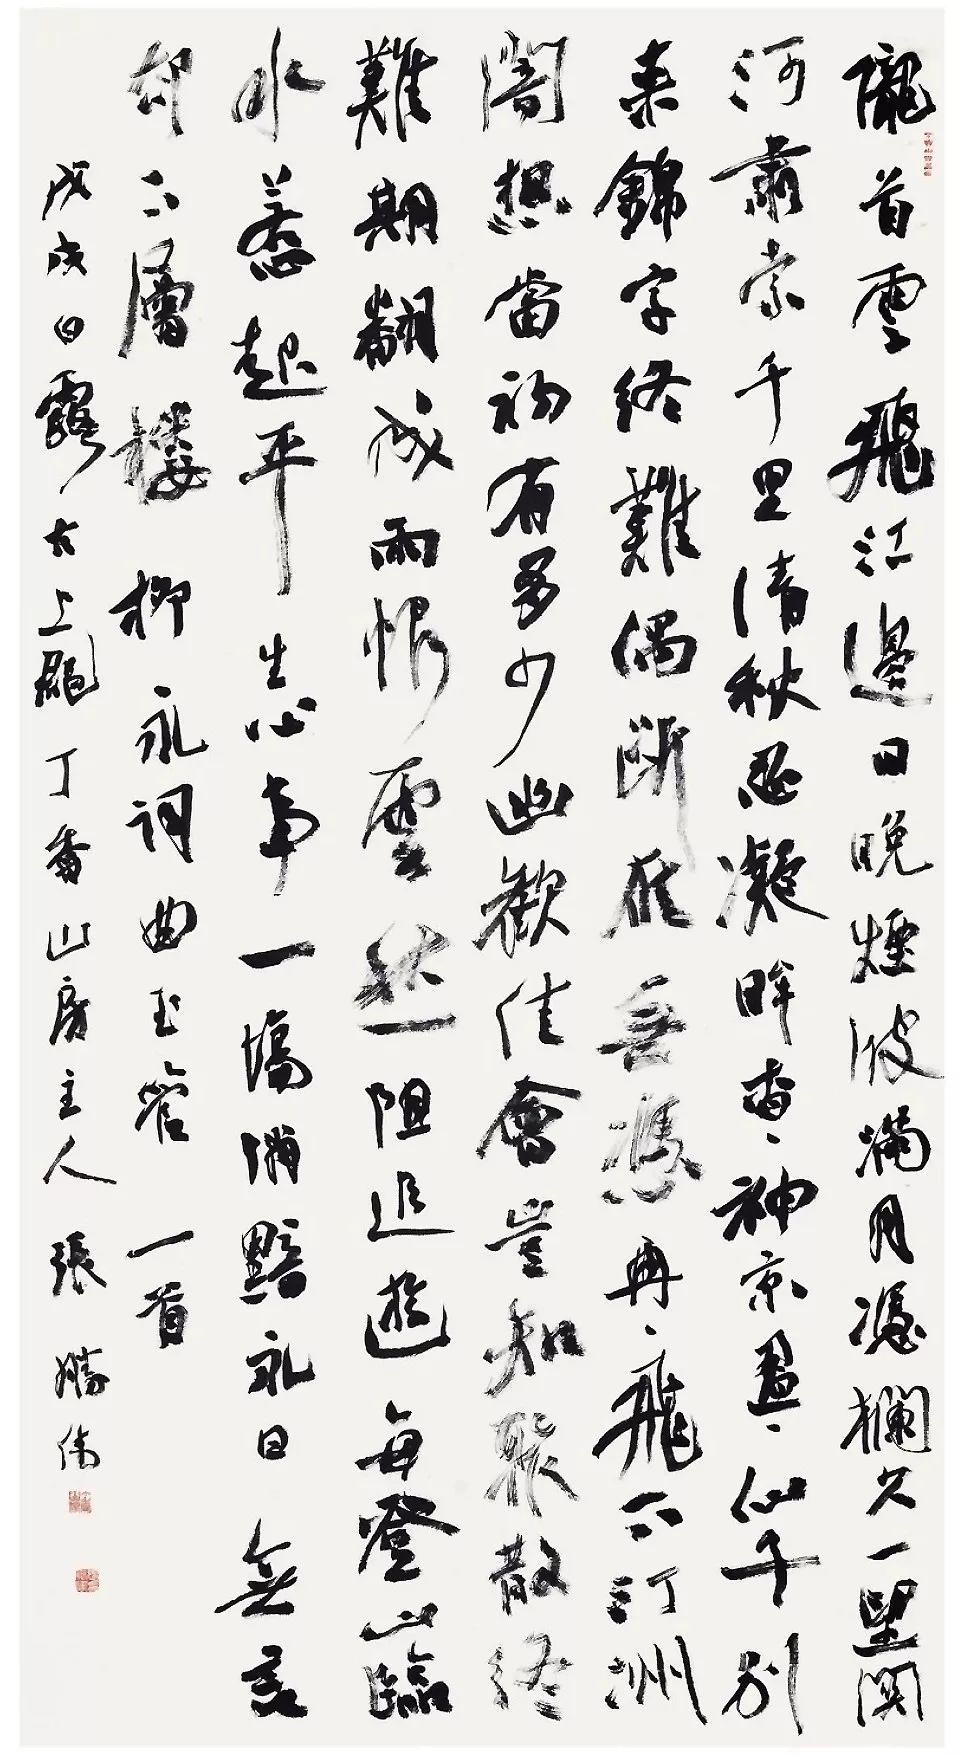 隴首雲飛江邊日晚煙波滿目憑欄久一望関
河蕭索千里清秋忍凝眸杳杳神京盈盈仙子別
来錦字終難偶斷雁無憑冉冉飛下汀洲
闇想當初有多少幽歡佳會豈知聚散終
難期翻成雨恨雲愁阻追遊每登山臨
水惹起平生心事一場消黯永日無言
却下層樓柳永詞曲玉管一首
戊戌白露上丁香山房主人張勝偉